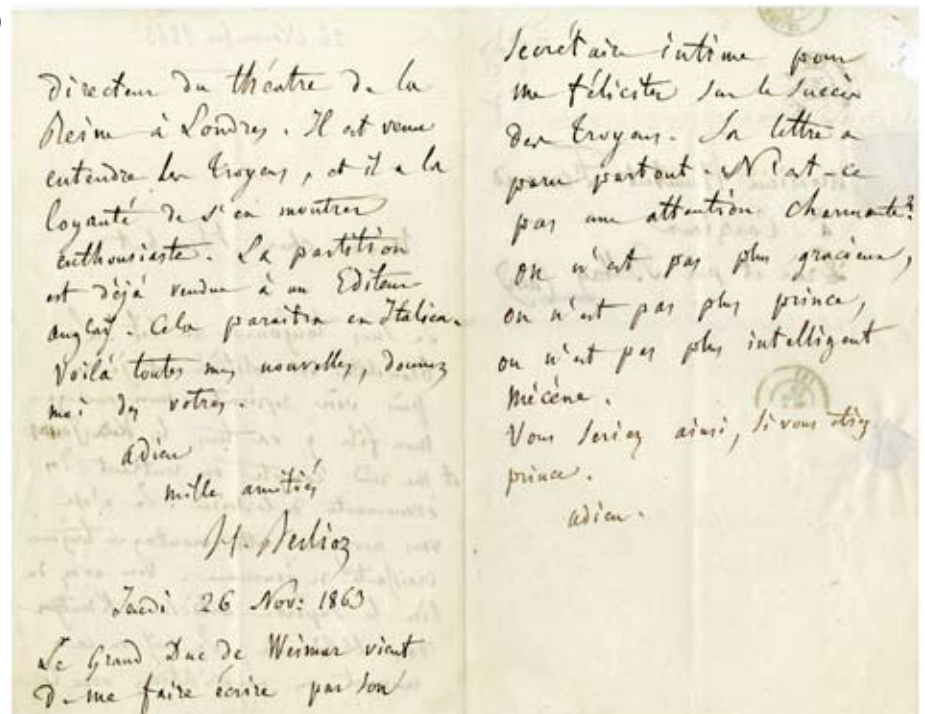 directeur du théatre de la
Reine à Londres. Il est venu
entendre les Troyens, et il a la
loyauté de s'en montrer
enthousiaste. La partition
est déjà vendue à un Editeur
anglais. Cela paraitra en Italien.
Voilà toutes mes nouvelles, donnez
moi des votres.
adieu
mille amitiés
H. Berlioz
Jeudi 26 Nov: 1863
Le Grand Duc de Weimar vient
de me faire écrire par son
Secrétaire intime pour
me féliciter sur le succès
des Troyens. Sa lettre a
paru partout. N'est-ce
pas une attention charmante?
on n'est pas plus gracieux,
on n'est pas plus prince,
on n'est pas plus intelligent
mécène.
Vous seriez ainsi, si vous étiez
prince.
adieu.